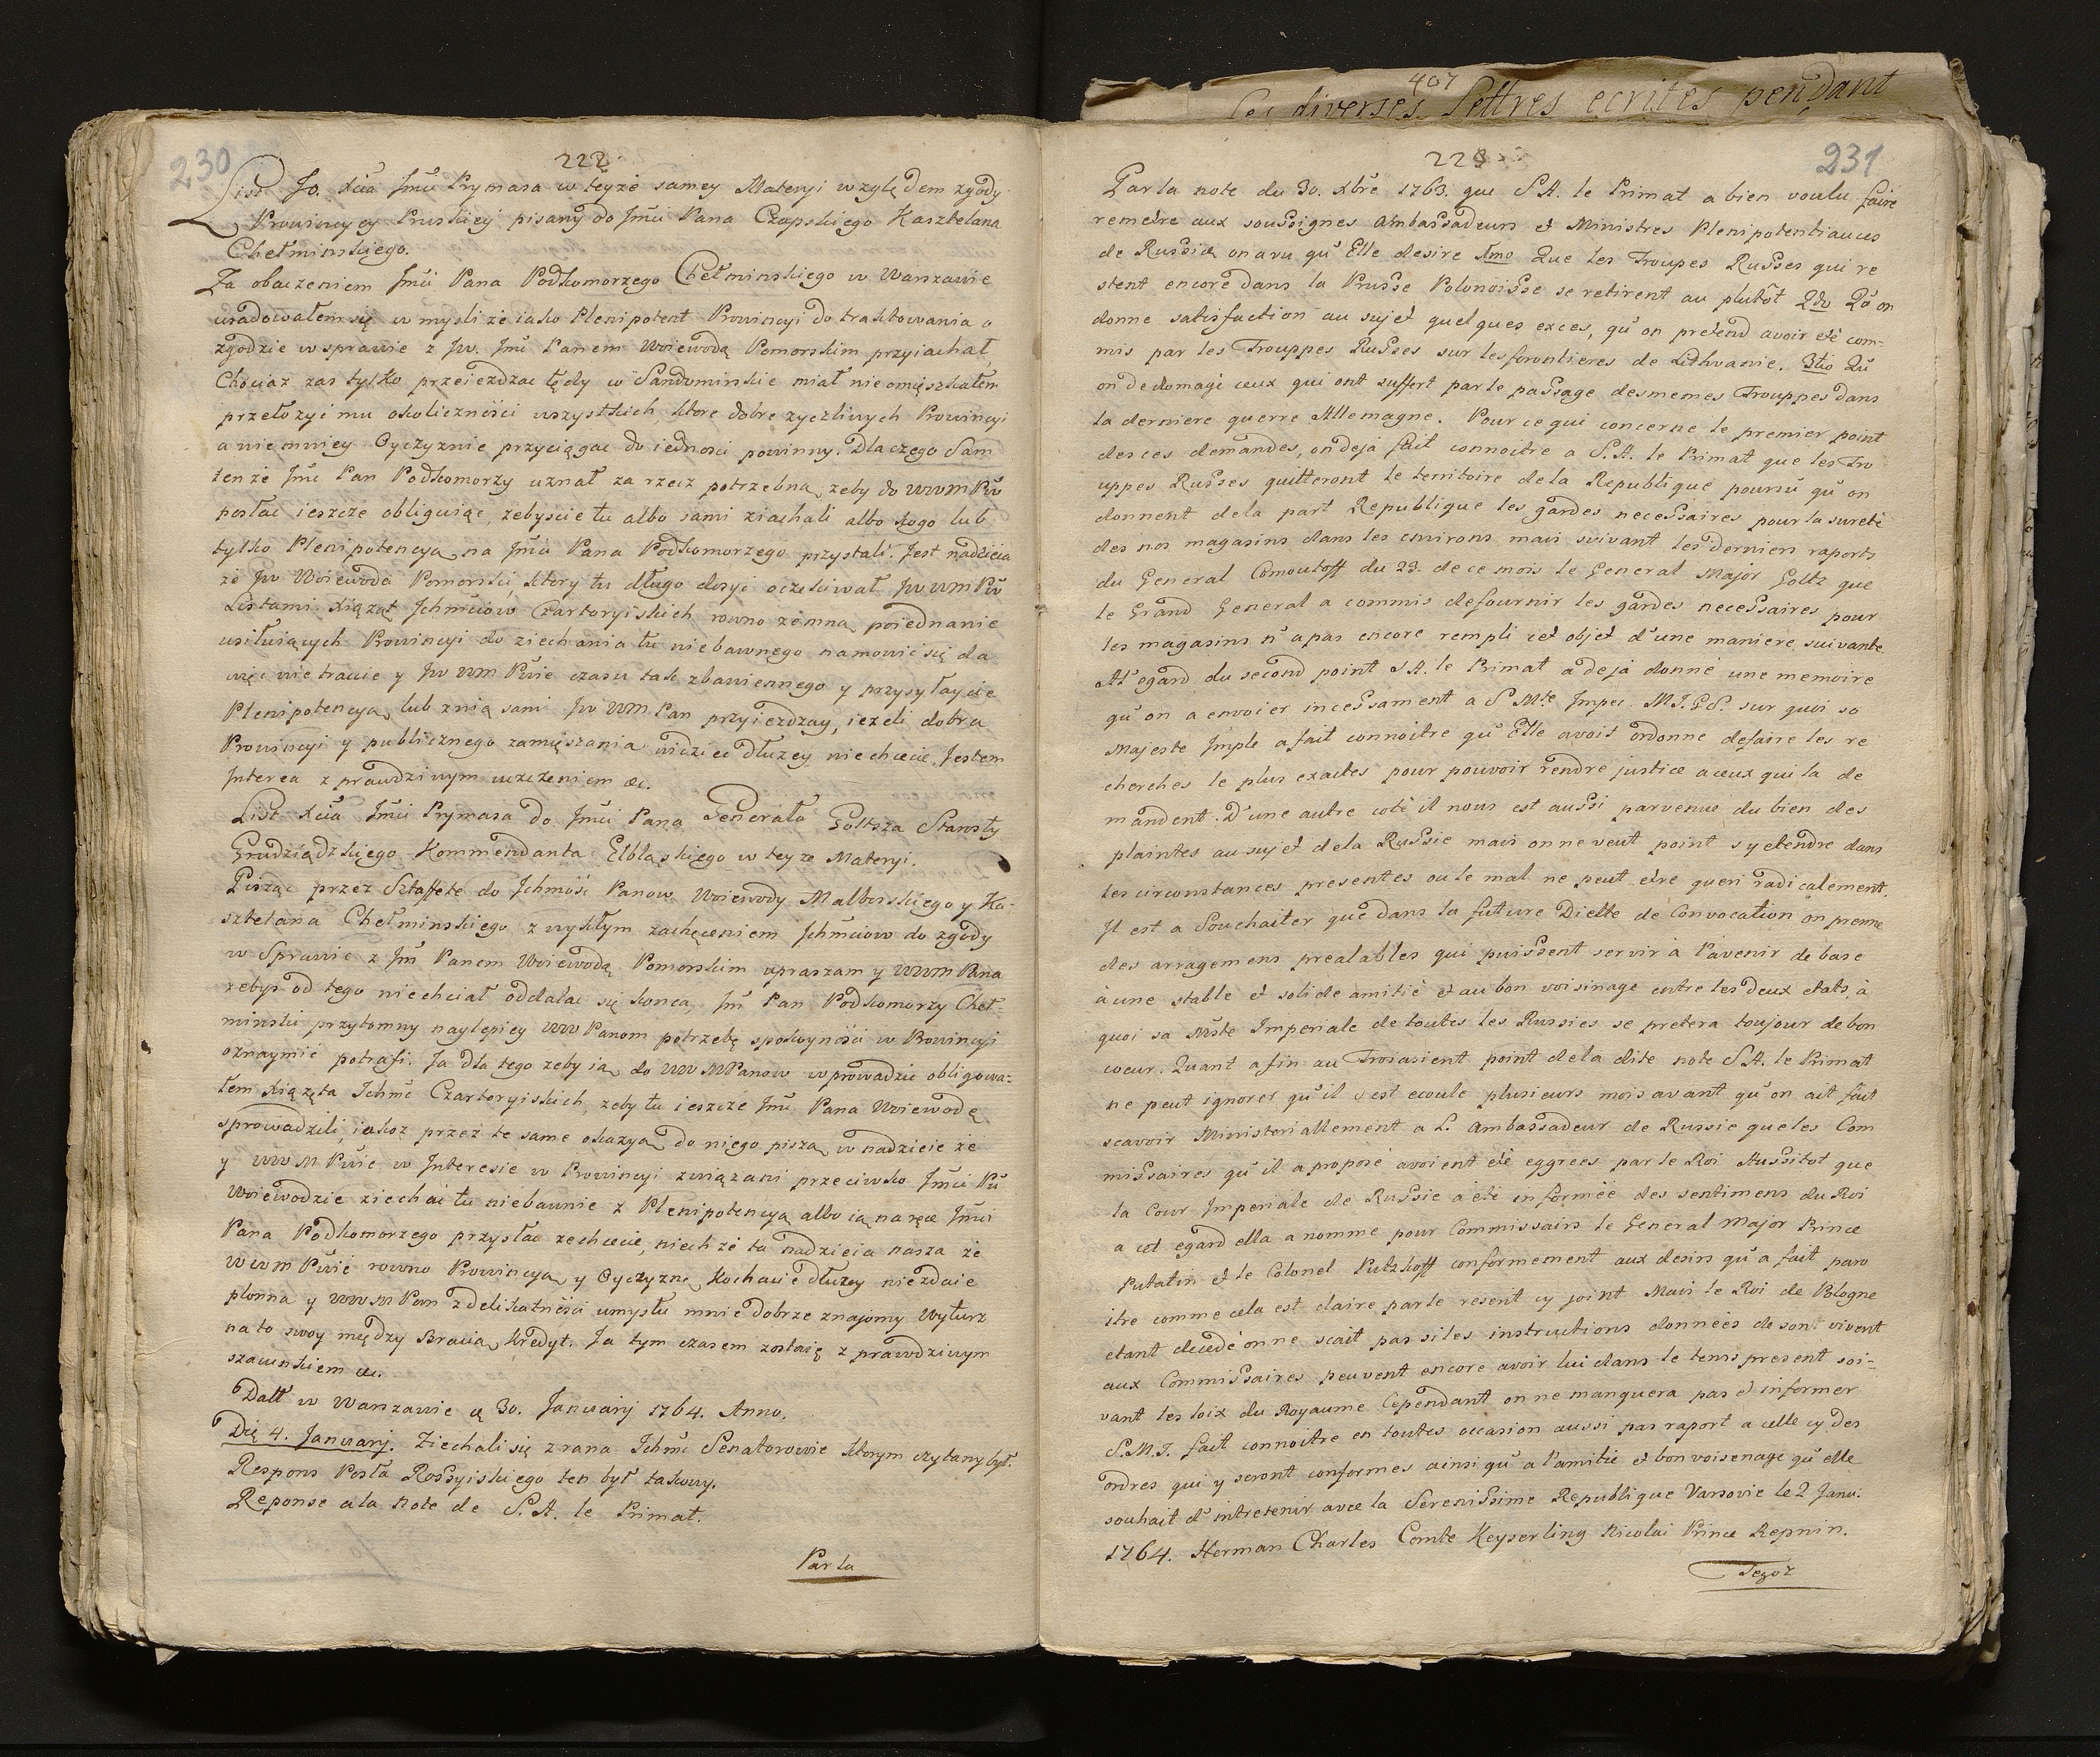 230
222
List Jo. Xcia Jmci Prymasa w teyże samey Materyi względem zgody
Prowincyey Pruskiey pisany do Jmci Pana Czapskiego Kasztelana
Chełminskiego.
Za obaczeniem Jmci Pana Podkomorzego Chełminskiego w Warszawie
uradowałem się w mysli że iako Plenipotent Prowincyi do traktowania o
zgodzie w sprawie z Jw. Jmci Panem Woiewodą Pomorskim przyiachał
Chociaz zas tylko przeiezdzac tędy w Sandomirskie miał nie omięszkałem
przełozyi mu okolicznosci wszystkich, ktore dobre zyczliwych Prowincyi
a niemniey Oyczyznie przyciągac do iednosci powinny. Dla czego Sam
tenże Jmci Pan Podkomorzy uznał za rzecz potrzebną zeby do WWM Pw
posłac ieszcze obliguiąc, zebyscie tu albo sami ziachali albo kogo lub
tylko Plenipotencyą na Jmci Pana Podkomorzego przystali. Jest nadzieia
że Jw Woiewoda Pomorski, ktory tu długo dosyi oczekiwał Jw WM Pw
Listami Xiążąt Jchmciow Czartoryiskich rowno zemną poiednanie
usiłuiących Prowincyi do ziechania tu niebawnego namowic się da
więc nie tracie y Jw WM Pnie czasu tak zbawiennego y przysyłaycie
Plenipotencyą, lub znią sami Jw WM Pan przyiezdzay, iezeli dobra
Prowincyi y publicznego zamięszania widziec dłuzey niechcecie. Jestem
Interea z prawdziwym uczczeniem &c.
List Xcia Jmci Prymasa do Jmci Pana Generała Goltsza Starosty
Grudziądzkiego Kommendanta Elbląskiego w teyze Materyi.
Pisząc przez Sztaffete do Jchmosc Panow Woiewody Malborskiego y Ka-
sztelana Chełminskiego z wykłym zachęceniem Jchmciow do zgody
w Sprawie z Jm Panem Woiewodą Pomorskim upraszam y WWM Pana
zebys od tego niechciał oddalac się konca, Jm Pan Podkomorzy Cheł-
minski przytomny naylepiey WW Panom potrzebę spokoynosci w Prowincyi
oznaymić potrafi. Ja dla tego zeby ią do WWM Panow wprowadzic obligowa-
łem Xiążęta Ichmc Czartoryiskich, zeby tu ieszcze Jmci Pana Woiewodę
sprowadzili, iakoz przez te same okazyą do niego piszą, w nadzieie że
y WWM Pnie w Interesie w Prowincyi związani przeciwko Jmci Pn
Woiewodzie ziechac tu niebawnie z Plenipotencyą albo ią na ręce Jmci
Pana Podkomorzego przysłac zechcecie, niech że ta nadzieia nasza że
WWM Pnie rowno Prowincyą y Oyczyznę Kochacie dłuzey niezdaie
płonna y WWM Pan z delikatnosci umysłu mnie dobrze znajomy Wyturz
na to swoy między Bracią kredyt. Ja tym czasem zostaię z prawdziwym
szacunkiem &c.
Datt w Warszawie d 30. January 1764. Anno.
Die 4. January. Ziechali się zrana Ichmc Senatorowie ktorym czytany był
Respons Posła Rossyiskiego ten był takowy.
Reponse a la Note de S. A. le Primat.
Par la
407
les diverses Lettres ecrites pendant
223
231
Par la note du 30. Xbre 1763. que S A. le Primat a bien voulu faire
remetre aux soussignes Ambassadeurs et Ministres Plenipotentiaires
de Russie on a vu qu'Elle desire 1mo Que les Troupes Russes qui re
stent encore dans la Prusse Polonoisse se retirent au plutôt 2do Qu on
donne satisfaction au sujet quelques exces, qu'on pretend avoir été com-
mis par les Trouppes Russes sur les forontieres de Lithvanie. 3tio Qu
on dedomagé ceux qui ont suffert par le passage des memes Trouppes dans
la derniere querre Allemagne. Pour ce qui concerne le premier point
des ces demandes, on deja fait connoitre a S. A. le Primat que les Tro
uppes Russes quitteront le territoire de la Republique pourvû qu'on
donnent de la part Republique les gardes necessaires pour la sureté
des nos magasins dans les environs mais suivant les derniers raports
du General Comoutoff du 23. de ce mois le General Major Goltz que
le Grand General a commis de fournir les gardes necessaires pour
les magasins n'a pas encore rempli cet objet d'une maniere suivante
Al'egard du second point S A. le Primat a deja donné une memoire
qu'on a envoier incessament a S Mte Imper. M. J. G S. sur quoi sa
Majeste Imple a fait connoitre qu'Elle avoit ordonne de faire les re
cherches le plus exactes pour pouvoir rendre justice a ceux qui la de
mandent. D'une autre coté il nous est aussi parvenue du bien des
plaintes au sujet de la Russie mais on ne veut point s y etendre dans
les circonstances presentes ou le mal ne peut etre gueri radicalement.
Il est a Souchaiter que dans la future Diette de Convocation on prenne
des arragemens prealables qui puissent servir à l'avenir de base
à une stable et solide amitié et au bon voisinage entre les deux etats, à
quoi sa Mste Imperiale de toutes les Russies se pretera toujour de bon
coeur. Quant a fin au Troiasient point de la dite note S. A. le Primat
ne peut ignorer qu'il s est ecoulé plusieurs mois avant qu'on ait fait
scavoir Ministeriallement a L. Ambassadeur de Russie que les Com
missaires qu'il a proposé avoient été eggrees par le Roi Aussitot que
la Cour Imperiale de Russie a été informée des sentimens du Roi
a cet egard ella a nomme pour Commissairs le General Major Prince
Putatin et le Colonel Putzkoff conformement aux desirs qu'a fait paro
itre comme cela est claire par le resent cy joint Mais le Roi de Pologne
etant decedé on ne scait pas si les instructions données de son vivent
aux Commissaires peuvent encore avoir lui dans le tems present soi-
vant les loix du Royaume Cependant on ne manquera pas d'informer
S. M. J. fait connoitre en toutes occasion aussi par raport a celle cy Des
ordres qui y seront conformes ainsi qu'a l'amitie et bon voisenage qu'elle
souhait d'intretenir avec la Serenissime Republique Varsovie le 2 Janv.
1764. Herman Charles Comte Keyserling Nicolai Prince Repnin.
Tegoz